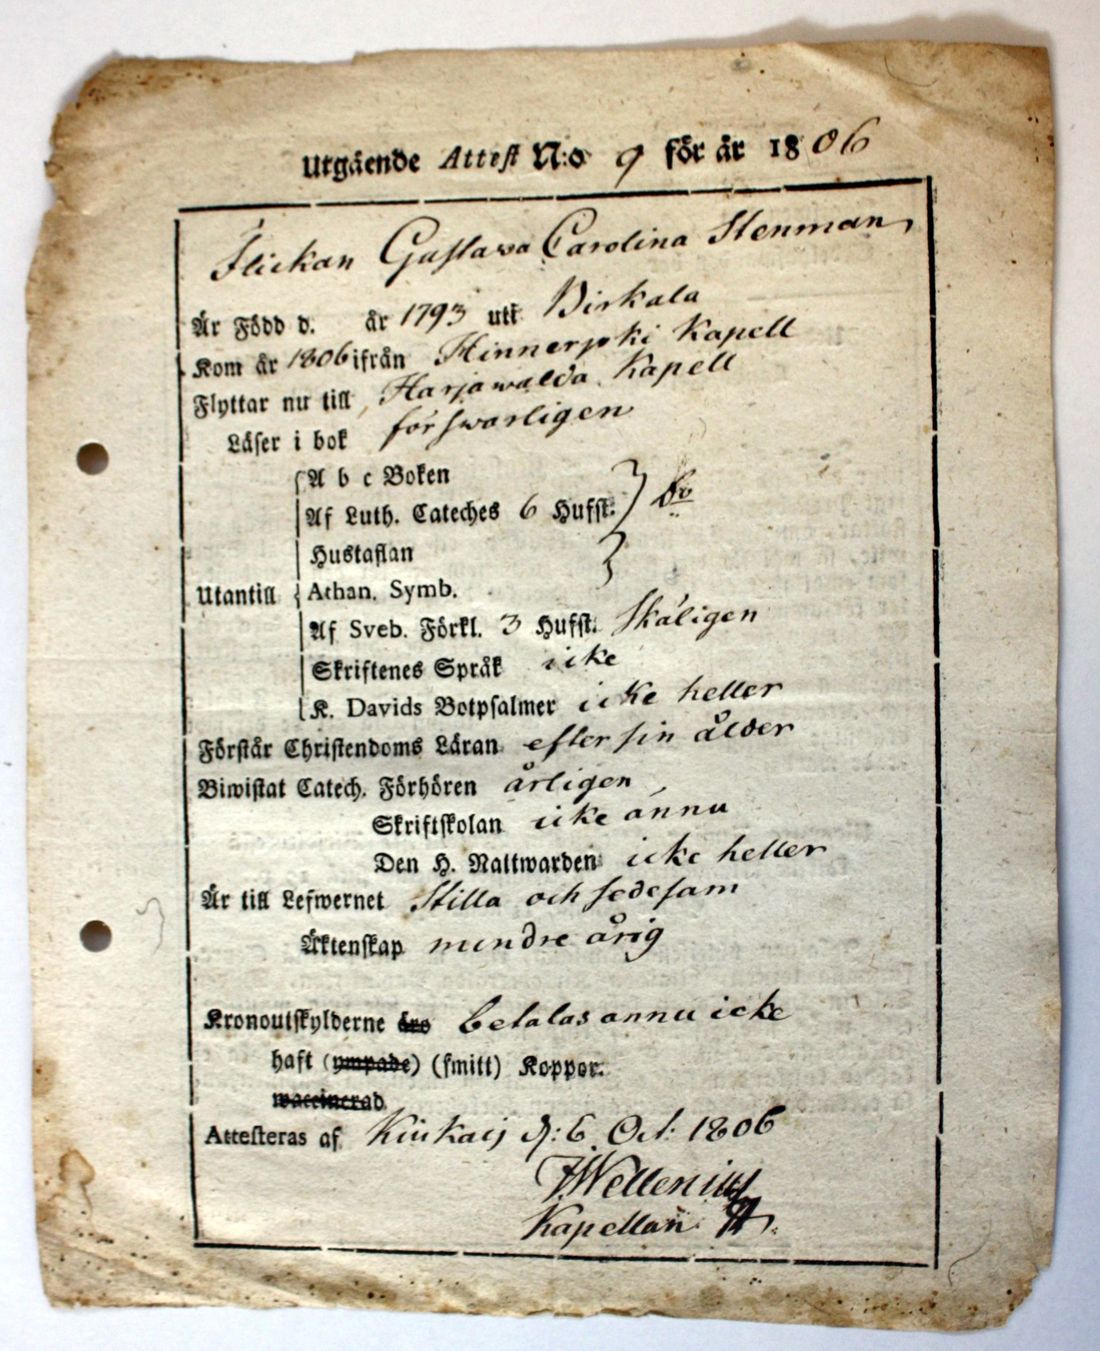 Utgående Attest N:o 9 för år 1806
Flickan Gustava Carolina Stenman,
Är Född d. år 1793 uti Birkala
Kom år 1806 ifrån Hinnerjoki Kapell
Flyttar nu till, Harjawalda Kapell
Läser i bok förswarligen
A b c Boken
Af Luth. Cateches 6 Hufst.
Hustaflan
Utantill Athan. Symb.
Af Sveb. Förkl. 3 Hufst. Skäligen
Skriftenes Språk icke
K. Davids Botpsalmer icke heller
Förstår Christendoms Läran efter sin ålder
Biwistat Catech. Förhören årligen
Skriftskolan icke ännu
Den H. Nattwarden icke heller
Är till Lefwernet Stilla och sedesam
Äktenskap mindre årig
Kronoutskylderne äro betalas ännu icke
haft (ympade) (smitt) Koppor.
waccinerad
Attesteras af Kiukais d: 6 Oct: 1806
Wellenius
Kapellan